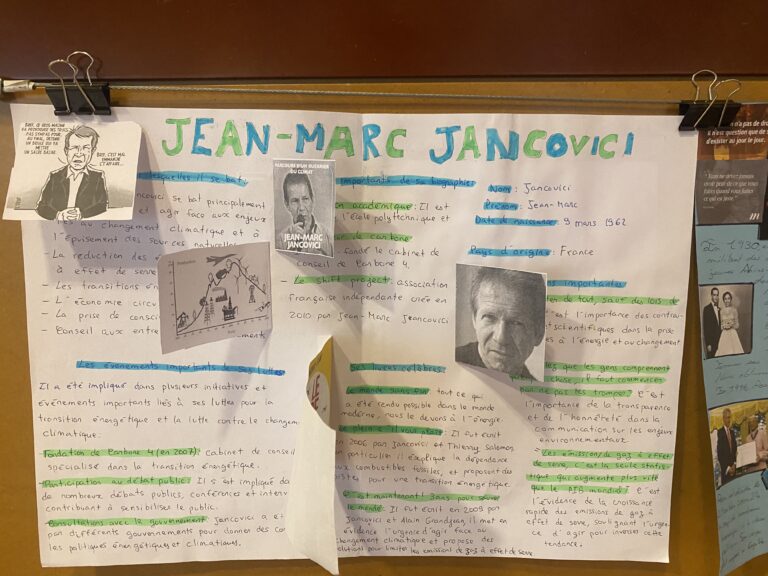 JEAN-MARC JANCOVICI
BREF, CE GROS-MALIN
AU FINAL, DEVIENT
METTRE
UN SACRÉ BAZAR.
BREF, C'EST MAL
EMMANCHÉ
C'T'AFFAIRE...
lesquelles il se bat
ncovici se bat principalement
et agir face aux enjeux
liés au changement climatique et à
l'épuisement des sources naturelles
- La réduction des é
à effet de serre
- Les transitions én
- L'économie circu
- La prise de consci
- Conseil aux entre
nements
Les évènements importants de ses luttes
Il a été impliqué dans plusieurs initiatives et
évènements importants liés à ses luttes pour la
transition énergétique et la lutte contre le changement
climatique:
- Fondation de Carbone 4 (en 2007): cabinet de conseil
spécialisé dans la transition énergétique.
- Participation au débat public: Il s'est impliqué da
de nombreux débats publics, conférences et interv
contribuant à sensibiliser le public.
- Consultations avec le gouvernement Jancovici a é
par différents gouvernements pour donner des con
les politiques énergétiques et climatiques.
importants de sa biographie
on académique: Il est
l'école polytechnique et
PARCOURS D'UN GUERRIER
DU CLIMAT
JEAN-MARC
JANCOVICI
fondé le cabinet de
Conseil de Carbone 4.
- Le shift project: association
Française indépendante créé en
2010 par Jean-Marc Jancovici
Ses livres célèbres
Le monde sans fin tout ce qui
a été rendu possible dans le monde
moderne, nous le devons à l'énergie.
Le plein s'il vous plaît Il fut écrit
en 2006 par Jancovici et Thierry Salomon
en particulier il explique la dépendance
aux combustibles fossiles, et proposent des
pistes pour une transition énergétique.
C'est maintenant! 3ans pour sauver
le monde: Il fut écrit en 2009 par
Jancovici et Alain Grandjean, Il met en
évidence l'urgence d'agir face au
changement climatique et propose des
solutions pour limiter les émissions de gaz à effet de serre
Nom: Jancovici
Prénom: Jean-Marc
Date de naissance: 9 mars 1962
Pays d'origine: France
ns importantes
ter de tout, sauf des lois de
est l'importance des contrain
scientifiques dans la prise
es à l'énergie et au changement
que les gens comprennent
chose, il faut commencer
par ne pas les tromper" C'est
l'importance de la transparence
et de l'honnêteté dans la
communication sur les enjeux
environnementaux.
- "Les émissions de gaz à effet
de serre, c'est la seule statis
tique qui augmente plus vite
que le PIB mondial" C'est
l'évidence de la croissance
rapide des émissions de gaz à
effet de serre, soulignant l'urgen
ce d'agir pour inverser cette
tendance.
n'a pas de dro
il n'est question que de s
d'exister au jour le jour.
En 1930